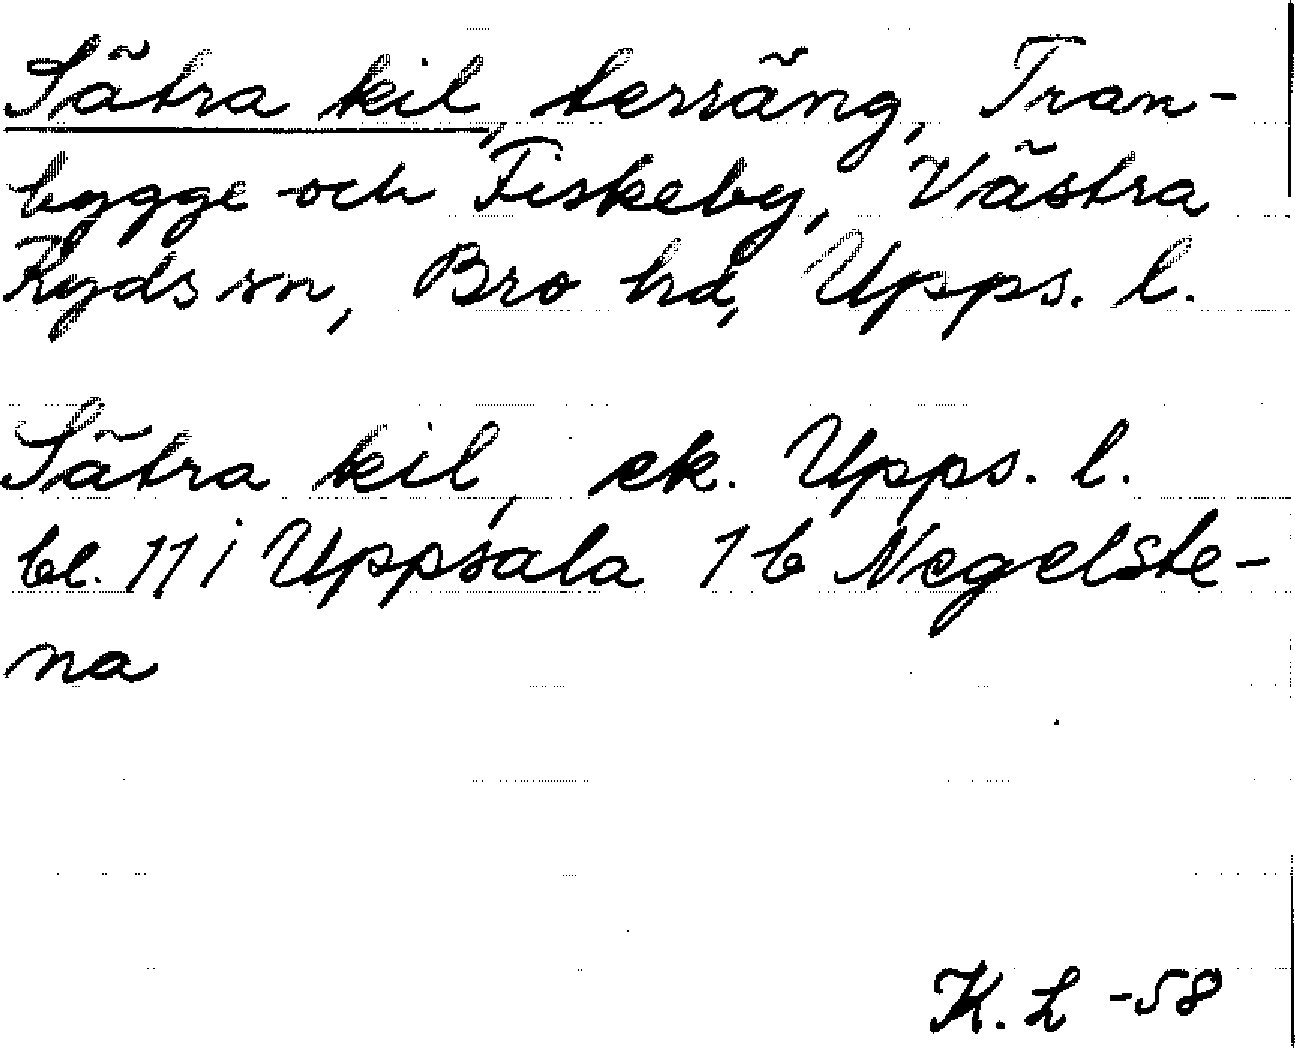 Sätra kil, terräng, Tran-
bygge och Fiskeby, Västra
Ryds sn, Bro hd, Upps. l.
Sätra kil, ek. Upps. l.
bl. 11 i Uppsala 1 b Negelste-
na
K. L -58